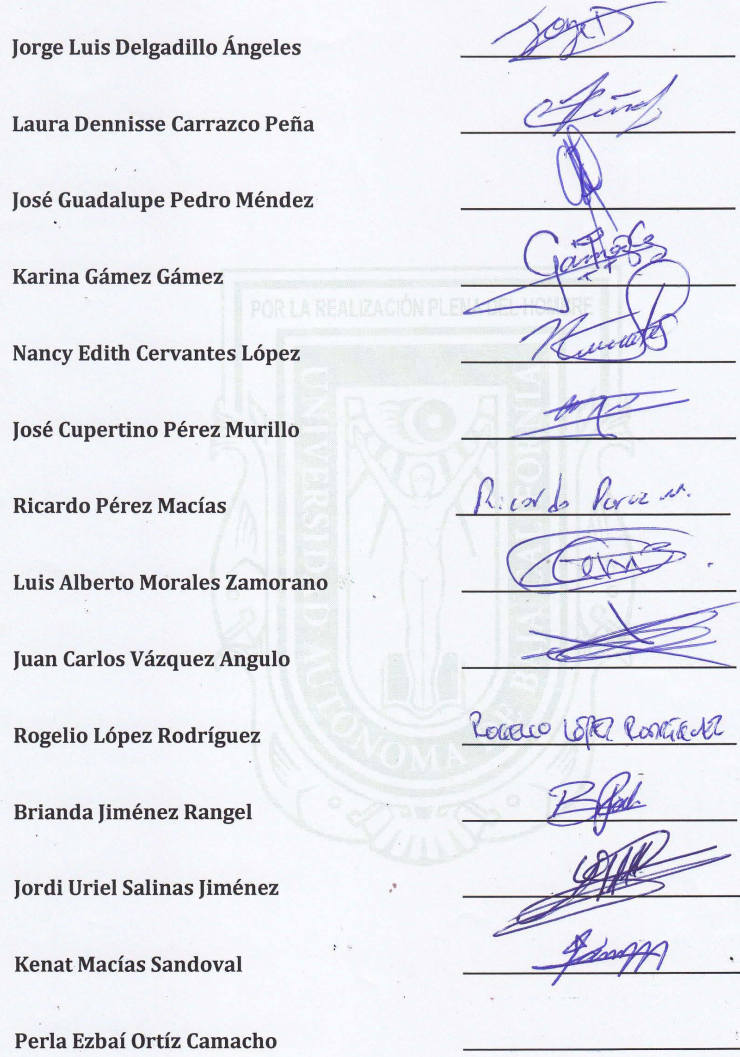 Jorge Luis Delgadillo Ángeles
Jorge D
Laura Dennisse Carrazco Peña
José Guadalupe Pedro Méndez
Karina Gámez Gámez
POR LA REALIZACIÓN PLENA DEL HOMBRE
Nancy Edith Cervantes López
José Cupertino Pérez Murillo
Ricardo Pérez Macías
Ricardo Perez M.
Luis Alberto Morales Zamorano
Juan Carlos Vázquez Angulo
Rogelio López Rodríguez
ROGELIO LÓPEZ RODRÍGUEZ
Brianda Jiménez Rangel
Jordi Uriel Salinas Jiménez
Kenat Macías Sandoval
Perla Ezbaí Ortíz Camacho
UNIVERSIDAD AUTÓNOMA DE BAJA CALIFORNIA